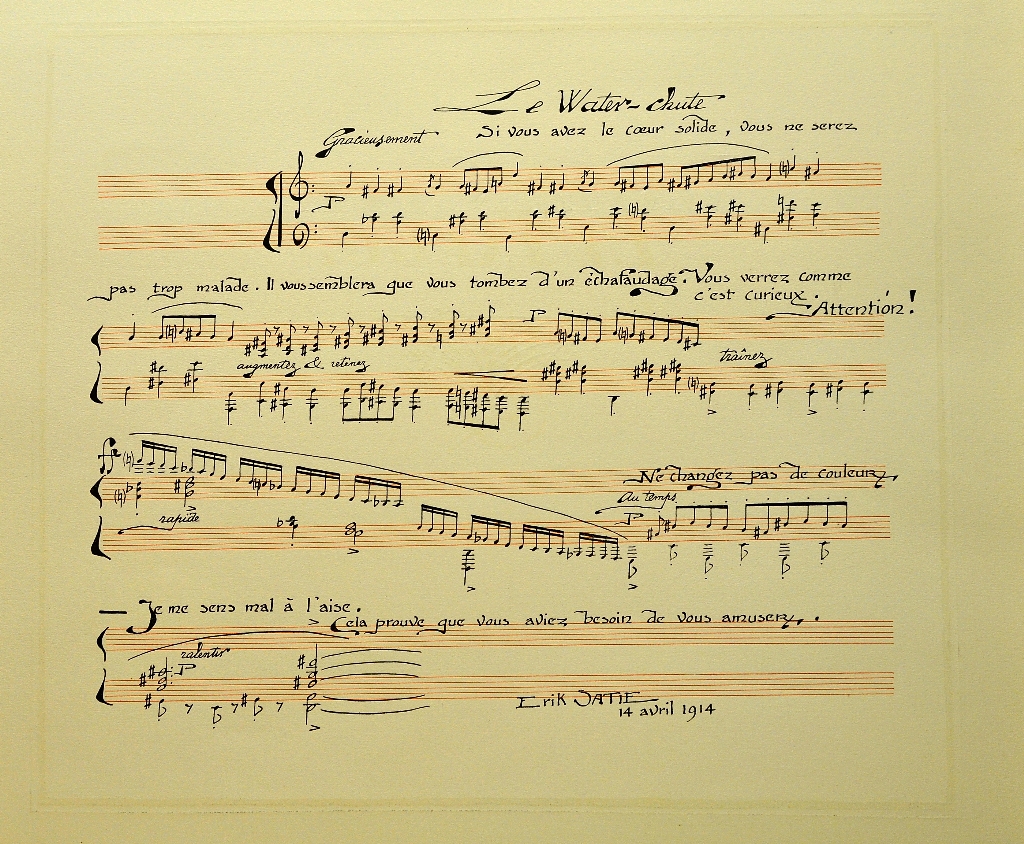 Le Water-chute
Gracieusement
Si vous avez le cœur solide, vous ne serez
P
pas trop malade. Il vous semblera que vous tombez d'un échafaudage. Vous verrez comme
c'est curieux.
Attention!
P
augmentez & retenez
traînez
ff
rapide
Ne changez pas de couleur.
Au temps
P
— Je me sens mal à l'aise.
Cela prouve que vous aviez besoin de vous amuser.
ralentir
P
Erik SATIE
14 avril 1914